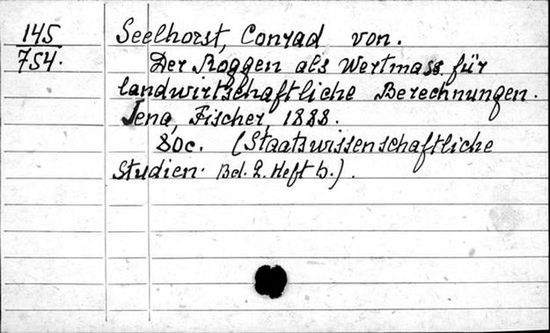 145
754.
Seelhorst, Conrad von.
Der Roggen als Wertmass für
landwirtschaftliche Berechnungen.
Jena, Fischer, 1888.
8oc. (Staatswissenschaftliche
Studien. Bd. 2. Heft 6.).